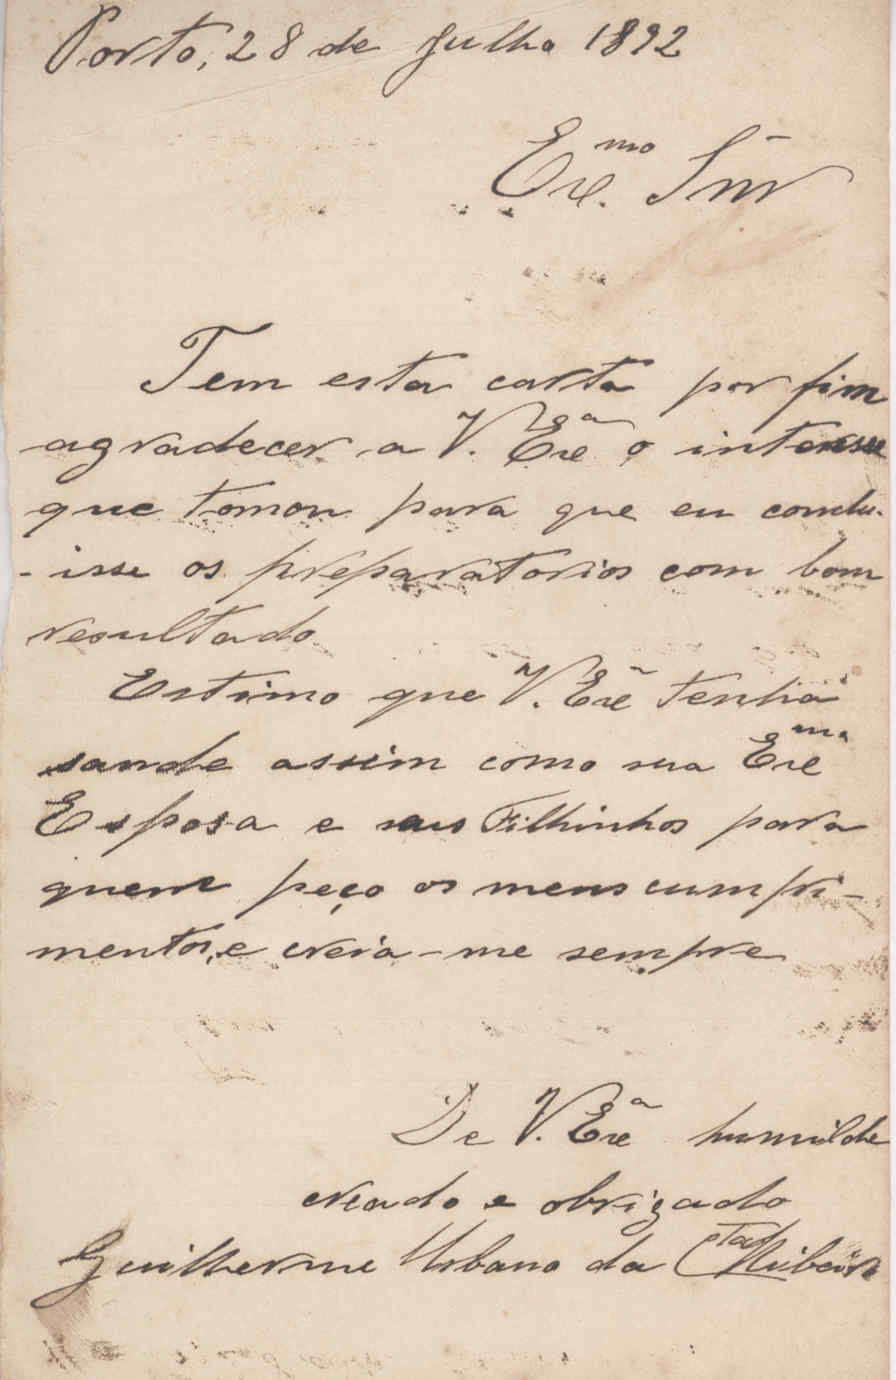 Porto, 28 de Julho 1892
Ex.mo Snr
Tem esta carta por fim
agradecer a V. Exa o interesse
que tomou para que eu conclu-
-isse os preparatorios com bom
resultado.
Estimo que V. Exa tenha
saude assim como sua Exma
Esposa e seus Filhinhos para
quem peço os meus cumpri-
mentos, e creia-me sempre
De V. Exa humilde
creado e obrigado
Guilherme Urbano da Cta Ribeiro